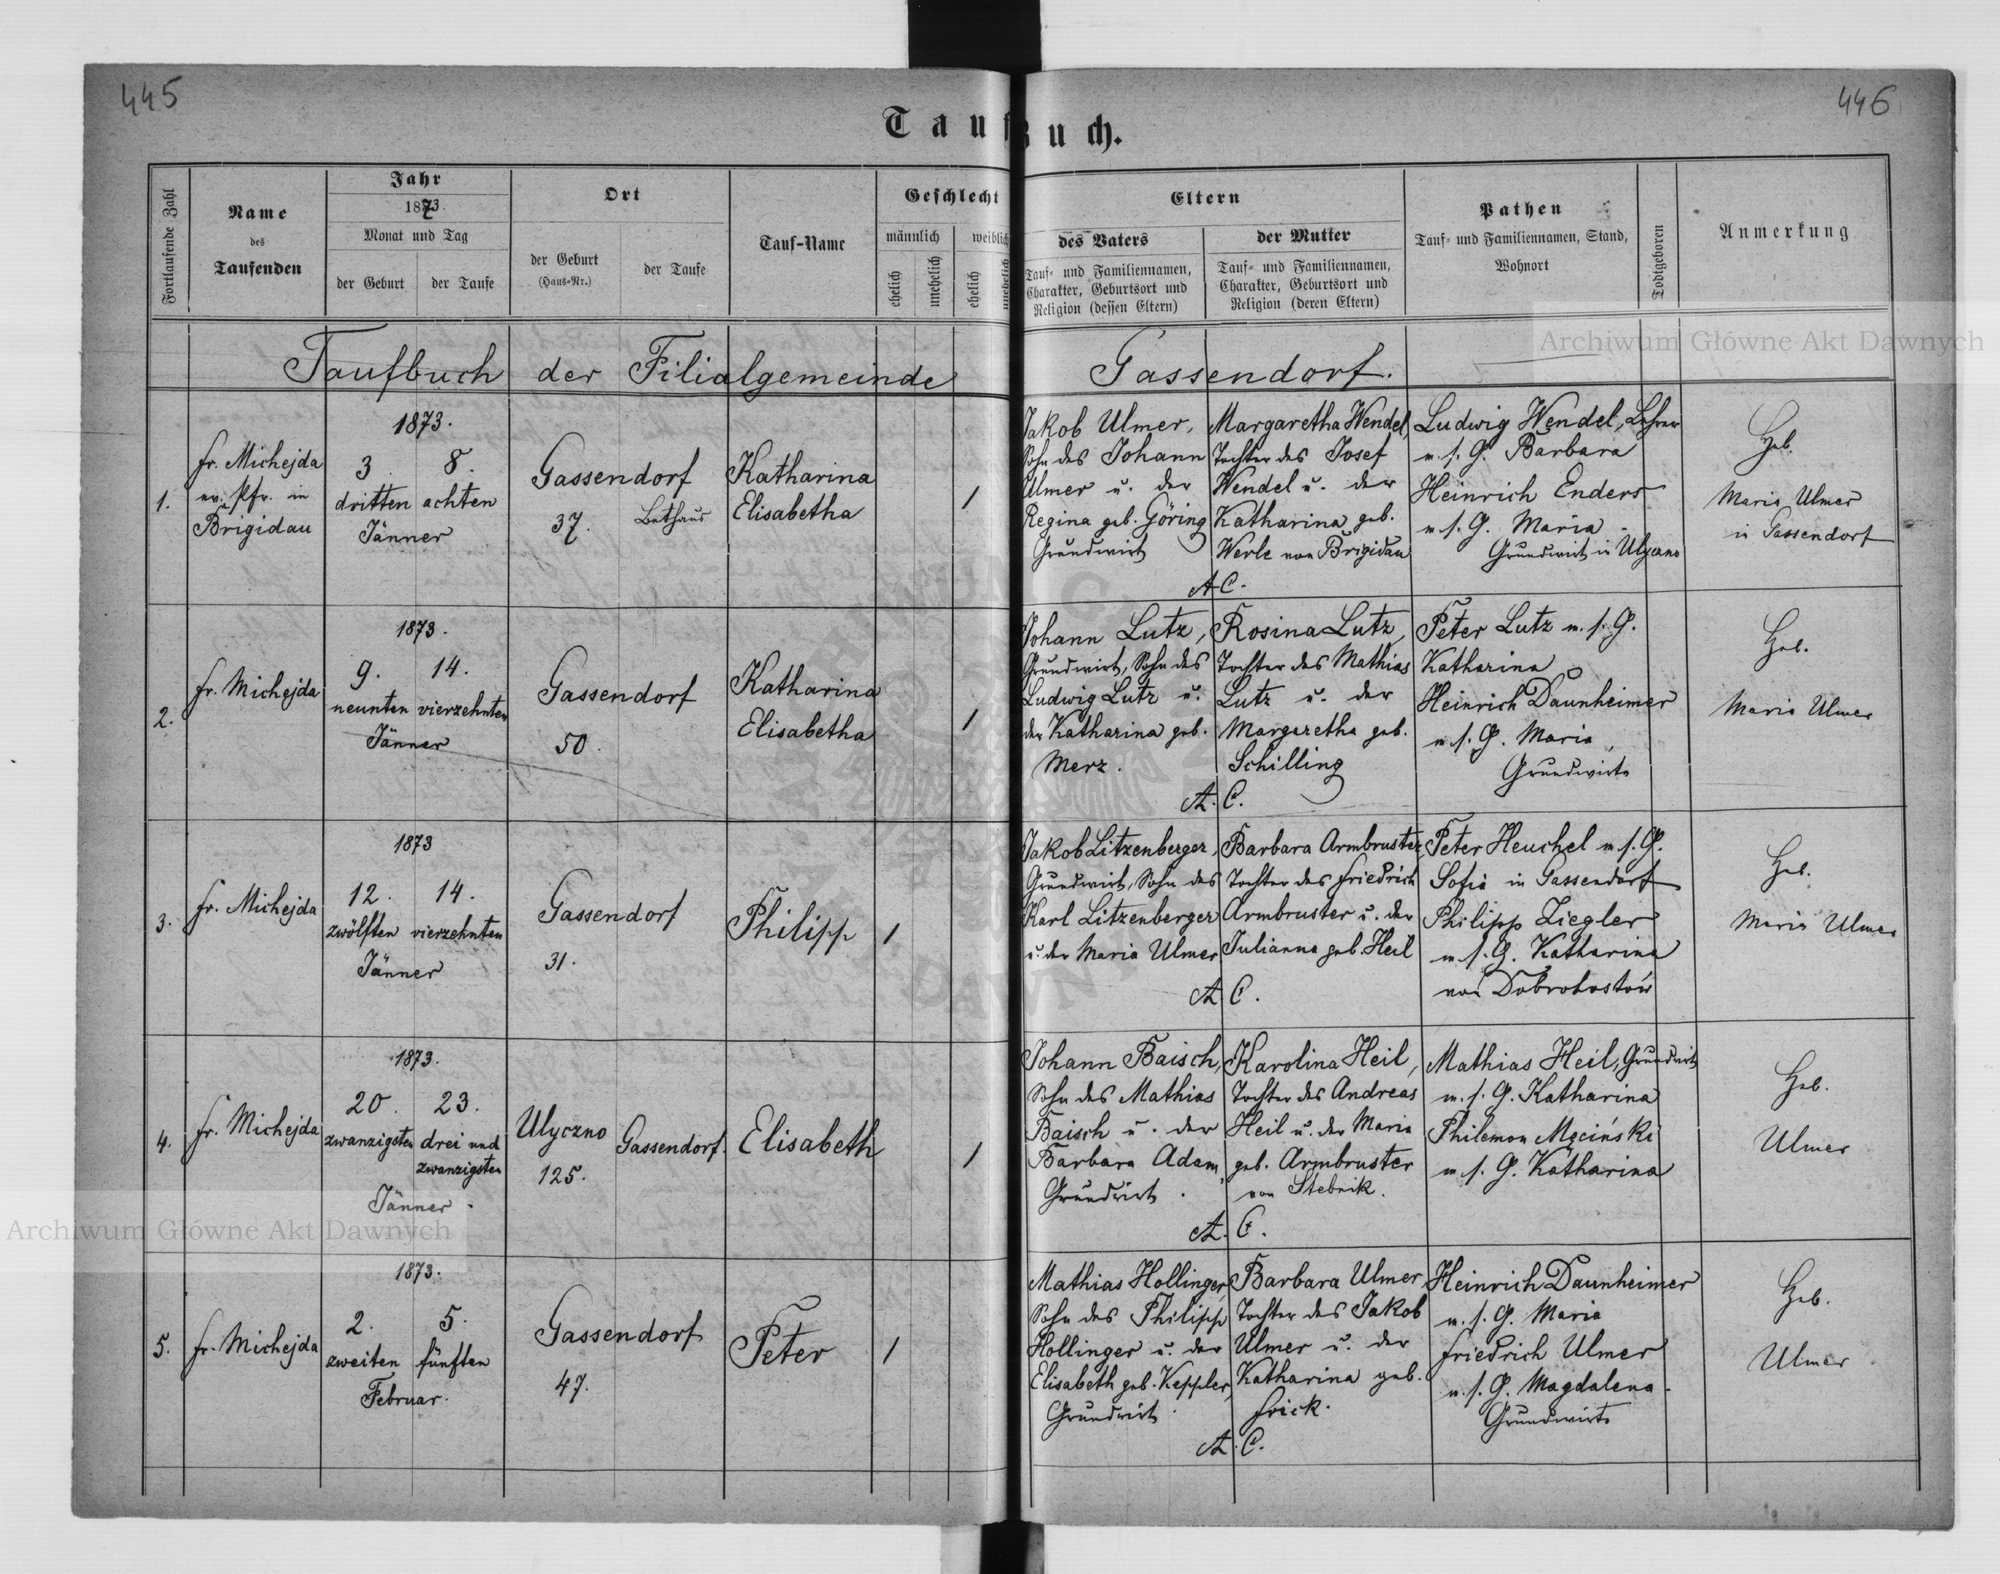 445
446
Taufbuch.
Fortlaufende Zahl
Name
des
Taufenden
Jahr
1873.
Monat und Tag
der Geburt
der Taufe
Ort
der Geburt
(Haus-Nr.)
der Taufe
Tauf-Name
Geschlecht
männlich
weiblich
ehelich
unehelich
ehelich
unehelich
Eltern
des Vaters
Tauf- und Familiennamen,
Charakter, Geburtsort und
Religion (dessen Eltern)
der Mutter
Tauf- und Familiennamen,
Charakter, Geburtsort und
Religion (deren Eltern)
Pathen
Tauf- und Familiennamen, Stand,
Wohnort
Todtgeboren
Anmerkung
Taufbuch der Filialgemeinde Gassendorf.
1.
fr. Michejda
ev. Pfr. in
Brigidau
1873.
3. 8.
dritten achten
Jänner
Gassendorf
37.
Bethaus
Katharina
Elisabetha
1
Jakob Ulmer,
Sohn des Johann
Ulmer u. der
Regina geb. Göring
Grundwirt
Margaretha Wendel,
Tochter des Josef
Wendel u. der
Katharina geb.
Werle von Brigidau
A.C.
Ludwig Wendel, Lehrer
u. s. G. Barbara
Heinrich Enders
u. s. G. Maria
Grundwirt in Ulyczno
Heb.
Maria Ulmer
in Gassendorf
2.
fr. Michejda
1873.
9. 14.
neunten vierzehnten
Jänner
Gassendorf
50.
Katharina
Elisabetha
1
Johann Lutz,
Grundwirt, Sohn des
Ludwig Lutz u.
der Katharina geb.
Merz.
Rosina Lutz,
Tochter des Mathias
Lutz u. der
Margaretha geb.
Schilling
A. C.
Peter Lutz u. s. G.
Katharina
Heinrich Daunheimer
u. s. G. Maria,
Grundwirte
Heb.
Maria Ulmer
3.
fr. Michejda
1873
12. 14.
zwölften vierzehnten
Jänner
Gassendorf
31.
Philipp
1
Jakob Litzenberger,
Grundwirt, Sohn des
Karl Litzenberger
u. der Maria Ulmer
Barbara Armbruster,
Tochter des Friedrich
Armbruster u. der
Julianna geb. Heil
A. C.
Peter Heuchel u. s. G.
Sofia in Gassendorf
Philipp Ziegler
u. s. G. Katharina
von Dobrohostów
Heb.
Maria Ulmer
4.
fr. Michejda
1873.
20. 23.
zwanzigsten drei und
zwanzigsten
Jänner.
Ulyczno
125.
Gassendorf.
Elisabeth
1
Johann Baisch,
Sohn des Mathias
Baisch u. der
Barbara Adam,
Grundwirt.
Karolina Heil,
Tochter des Andreas
Heil u. der Maria
geb. Armbruster
von Stebnik.
A. C.
Mathias Heil, Grundwirt
u. s. G. Katharina
Philemon Męciński
u. s. G. Katharina
Heb.
Ulmer
5.
fr. Michejda
1873.
2. 5.
zweiten fünften
Februar.
Gassendorf
47.
Peter
1
Mathias Hollinger,
Sohn des Philipp
Hollinger u. der
Elisabeth geb. Keppler,
Grundwirt.
Barbara Ulmer
Tochter des Jakob
Ulmer u. der
Katharina geb.
Frick.
A. C.
Heinrich Daunheimer
u. s. G. Maria
Friedrich Ulmer
u. s. G. Magdalena.
Grundwirte
Heb.
Ulmer
Archiwum Główne Akt Dawnych
Archiwum Główne Akt Dawnych